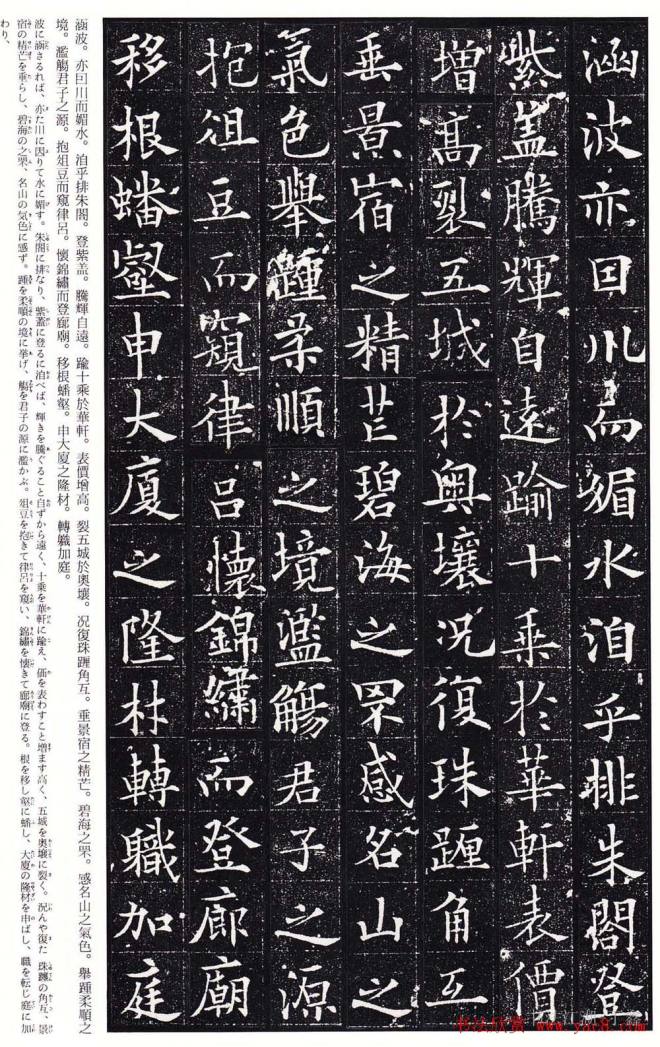 涵波亦囙川而媚水洎乎排朱閣登
紫盖騰輝自遠踰十乗於華軒表價
増髙裂五城於奥壤况復珠躔角互
垂景宿之精芒碧海之罘感名山之
氣色舉踵柔順之境濫觴君子之源
抱俎豆而窺律呂懷錦繡而登廊廟
移根蟠壑申大廈之隆材轉職加庭
涵波。亦囙川而媚水。洎乎排朱閣。登紫盖。騰輝自遠。踰十乗於華軒。表價増高。裂五城於奧壤。况復珠躔角互。垂景宿之精芒。碧海之罘。感名山之氣色。舉踵柔順之
境。濫觴君子之源。抱俎豆而窺律呂。懷錦繡而登廊廟。移根蟠壑。申大廈之隆材。轉職加庭。
波に涵さるれば、亦た川に因りて水に媚す。朱閣に排なり、紫蓋に登るに洎べば、輝きを騰ぐること自ずから遠く、十乗を華軒に踰え、価を表わすこと増ます高く、五城を奥壌に裂く。況んや復た 珠躔の角互、景
宿の精芒を垂らし、碧海の之罘、名山の気色に感ず。踵を柔順の境に挙げ、觴を君子の源に濫かぶ。俎豆を抱きて律呂を窺い、錦繡を懐きて廊廟に登る。根を移し壑に蟠し、大廈の隆材を申ばし、職を転じ庭に加
わり、
书法欣赏 www.yac8.com